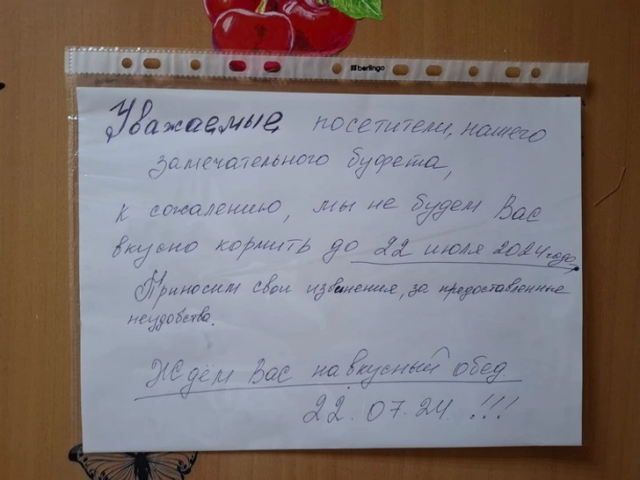 berlingo
Уважаемые посетители, нашего
замечательного буфета,
к сожалению, мы не будем Вас
вкусно кормить до 22 июля 2024 года.
Приносим свои извинения, за предоставленные
неудобства.
Ждём Вас на вкусный обед
22.07.24 !!!